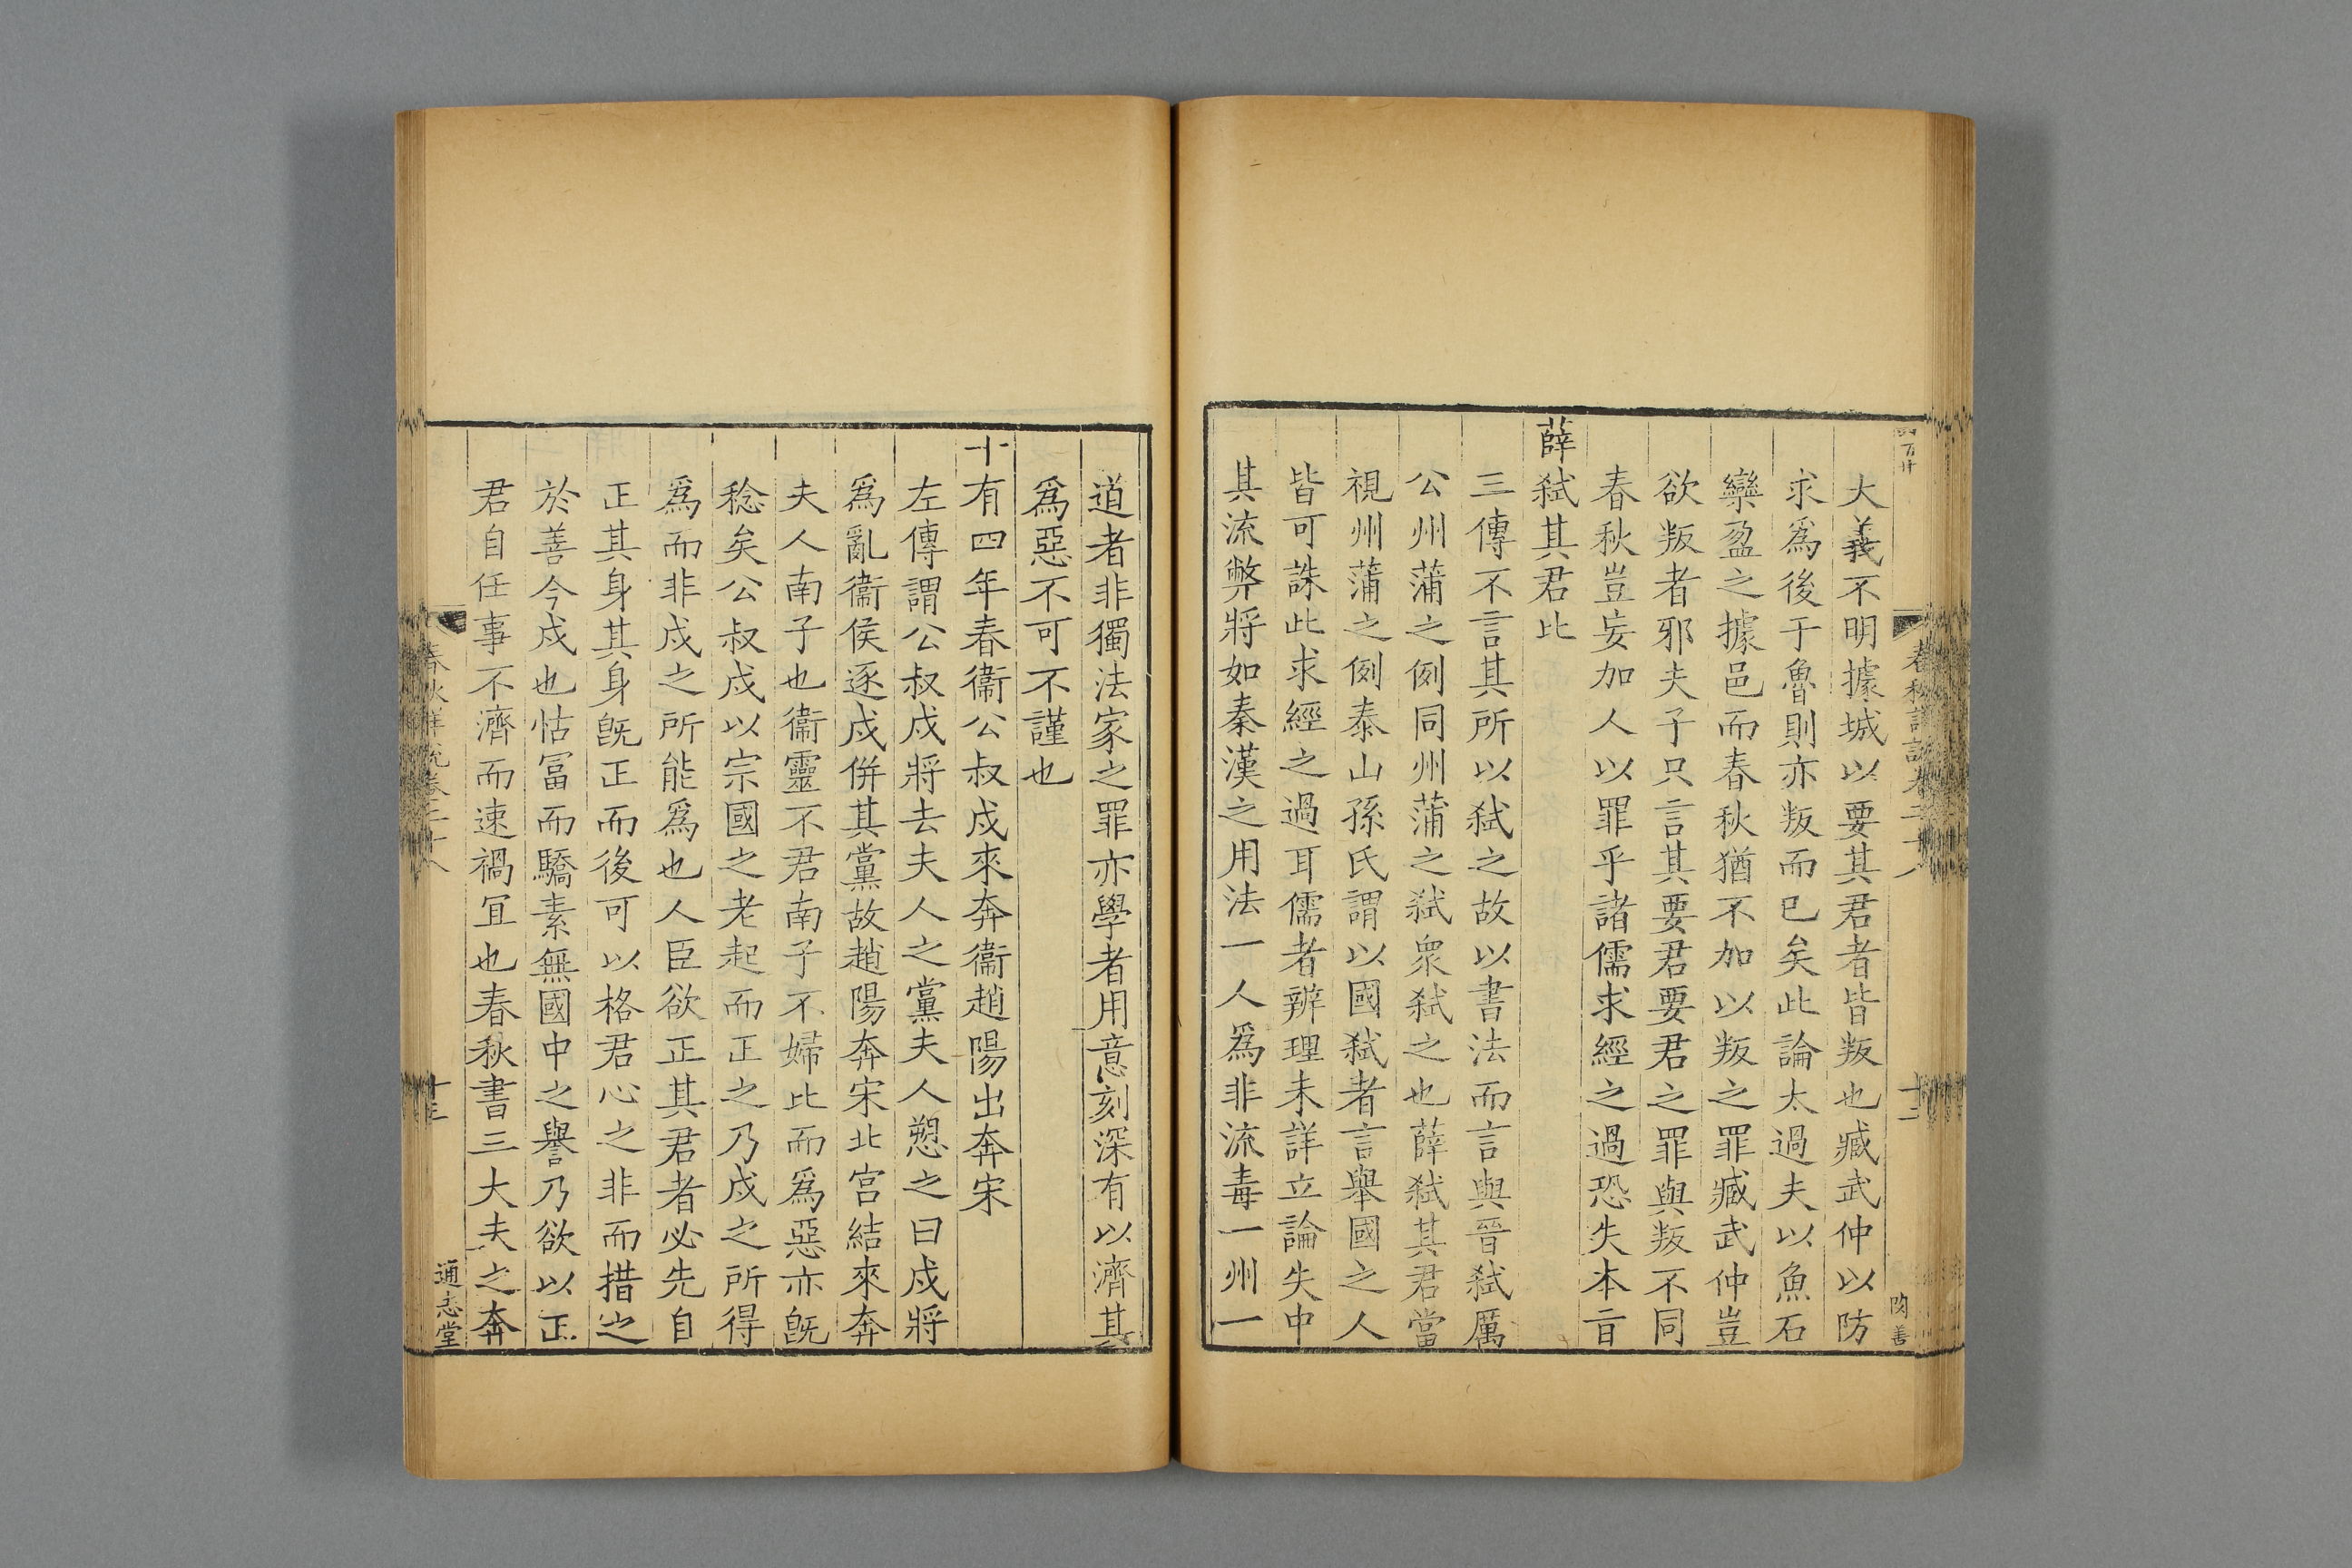 大義不明據城以要其君者皆叛也臧武仲以防
求爲後于魯則亦叛而已矣此論太過夫以魚石
欒盈之據邑而春秋猶不加以叛之罪臧武仲豈
欲叛者邪夫子只言其要君要君之罪與叛不同
春秋豈妄加人以罪乎諸儒求經之過恐失本旨
薛弑其君比
三傳不言其所以弑之故以書法而言與晉弑厲
公州蒲之例同州蒲之弑衆弑之也薛弑其君當
視州蒲之例泰山孫氏謂以國弑者言舉國之人
皆可誅此求經之過耳儒者辨理未詳立論失中
其流弊將如秦漢之用法一人爲非流毒一州一
道者非獨法家之罪亦學者用意刻深有以濟其
爲惡不可不謹也
十有四年春衞公叔戍來奔衞趙陽出奔宋
左傳謂公叔戍將去夫人之黨夫人愬之曰戍將
爲亂衞侯逐戍併其黨故趙陽奔宋北宫結來奔
夫人南子也衞靈不君南子不婦此而爲惡亦旣
稔矣公叔戍以宗國之老起而正之乃戍之所得
爲而非戍之所能爲也人臣欲正其君者必先自
正其身其身旣正而後可以格君心之非而措之
於善今戍也怙富而驕素無國中之譽乃欲以正
君自任事不濟而速禍宜也春秋書三大夫之奔
春秋詳說卷二十八
十三
通志堂